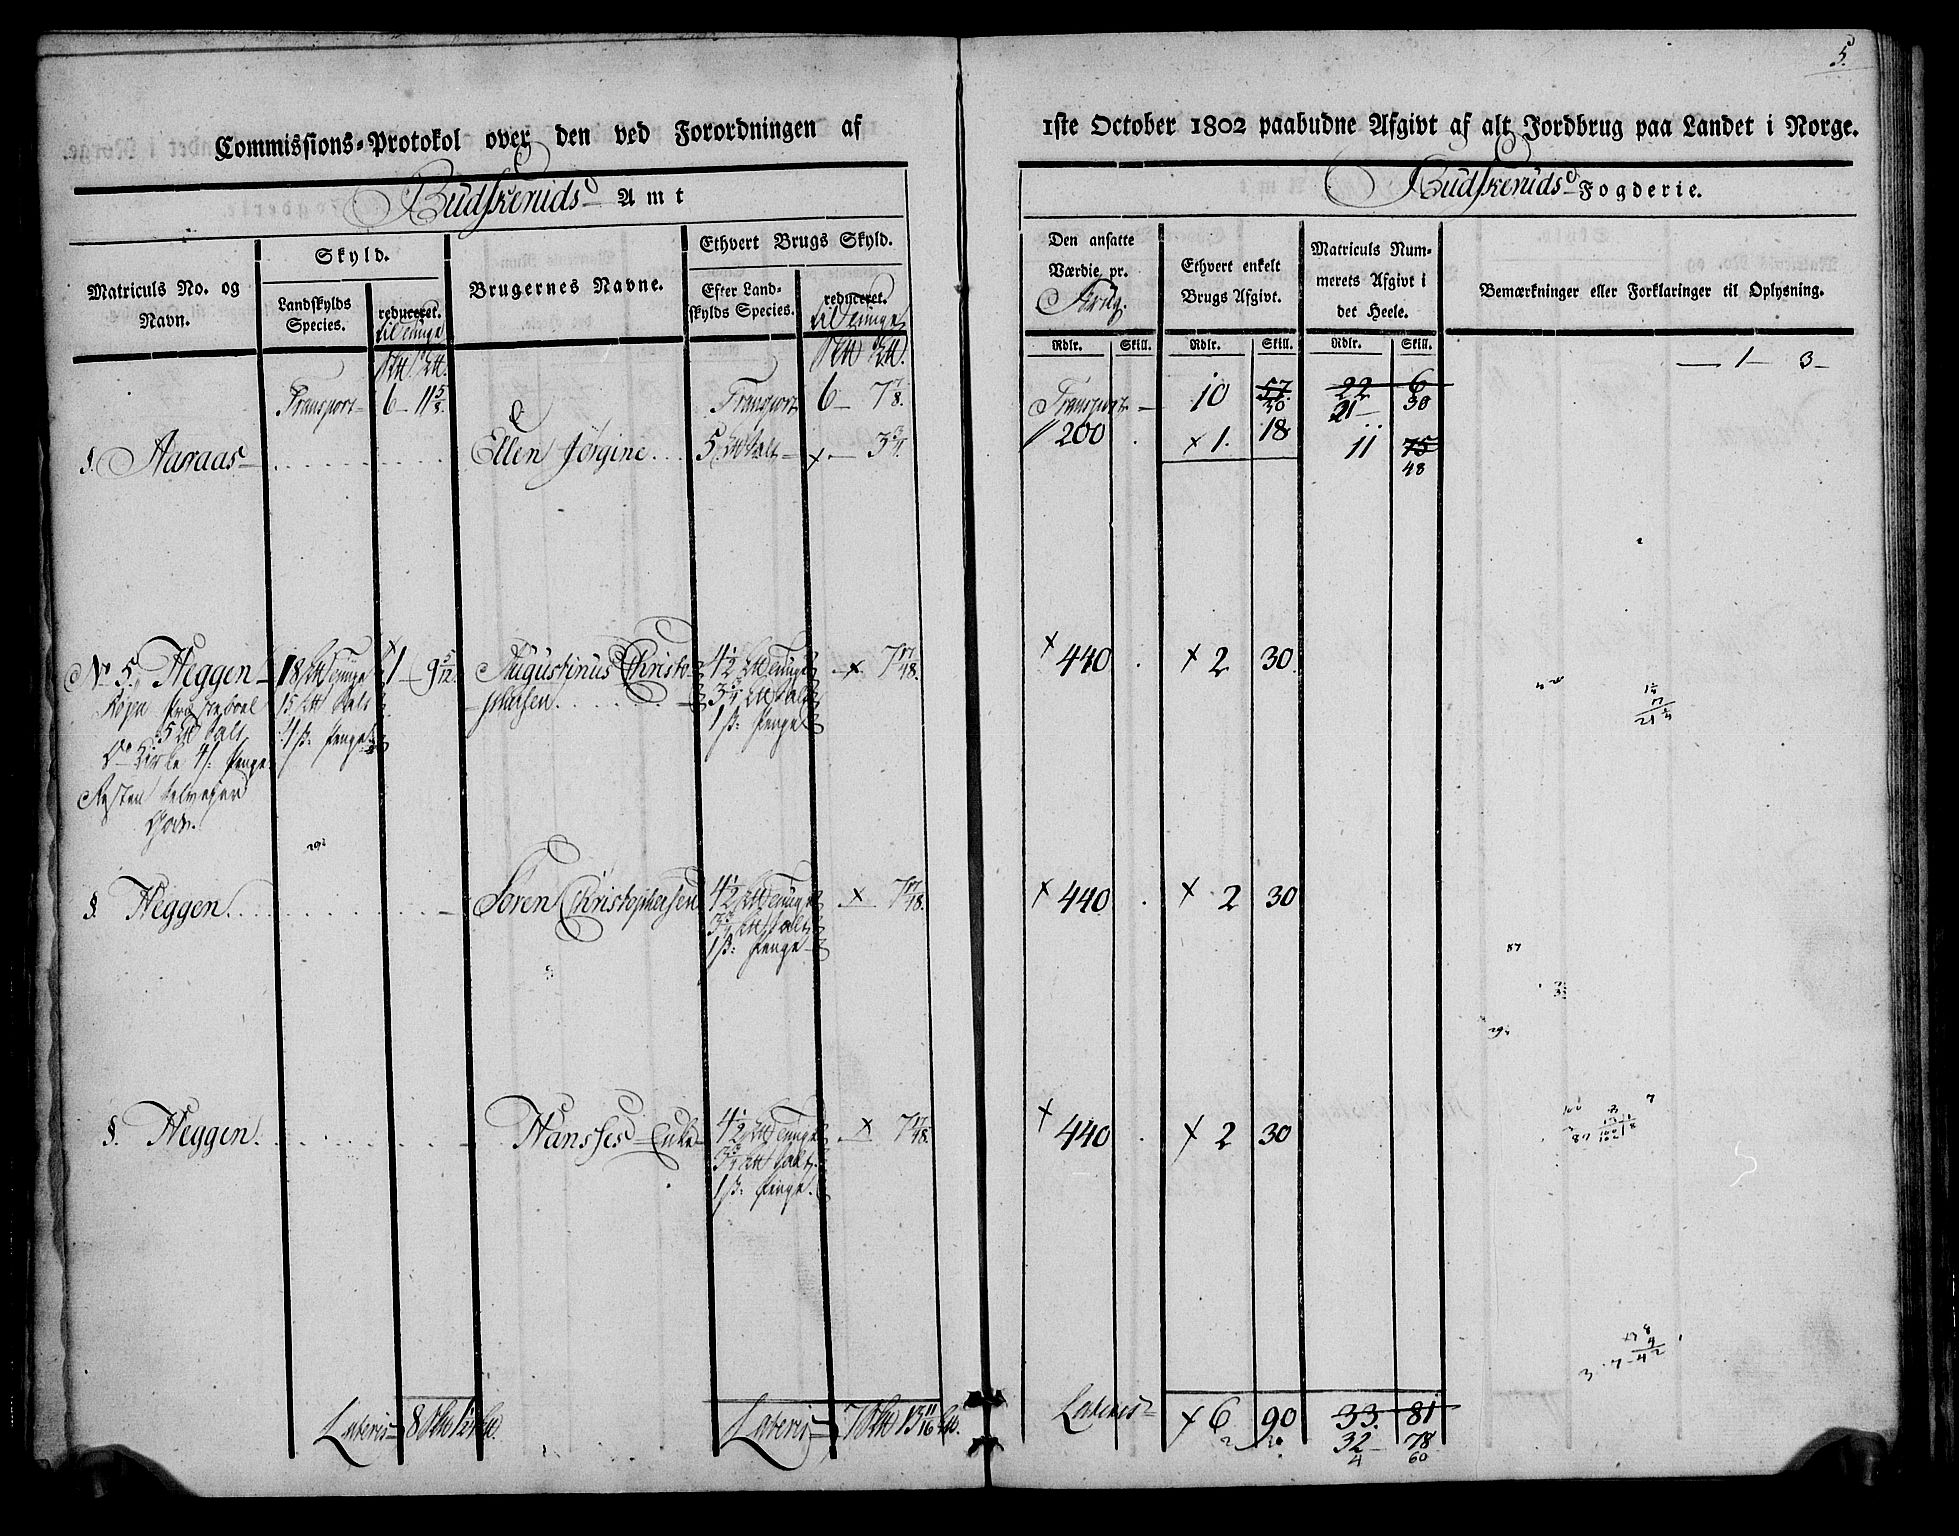 5.
Commissions-Protokol over den ved Forordningen af
1ste October 1802 paabudne Afgivt af alt Jordbrug paa Landet i Norge.
Budskeruds Amt
Budskeruds Fogderie.
Matriculs No. og Navn.
Skyld.
Landskylds Species.
reduceret.
til tunge
Brugernes Navne.
Ethvert Brugs Skyld.
Efter Landskylds Species.
reduceret.
til tunge
Den ansatte Værdie pr.
Ethvert enkelt Brugs Afgivt.
Matriculs Nummerets Afgivt i det Heele.
Bemærkninger eller Forklaringer til Oplysning.
Rdlr. Skill. Rdlr. Skill. Rdlr. Skill.
1 - 3 -
Transport 6 - 11 5/8. Transport 6 - 7 7/8. Transport - 10 57 30 22 6
21 - 30
§. Aaraas Ellen Jørgine 5 Salt 3 3/4. 200 . x 1. 18 11 75
48
No 5. Heggen 18 tunge 1 - 9 5/12. Augustinus Christo- 4 1/2 tunge x 7 17/48. x 440 . x 2 30.
15 Salt phersen. 3 3/4 Salt
5 Salt 4 ß: Penge 1 ß: Penge
Kirke 4 ß: Penge
Resten Selvejer
Gods.
§. Heggen. Søren Christophersen 4 1/2 tunge x 7 17/48. x 440 . x 2 30
3 3/4 Salt
1 ß: Penge
87
§. Heggen. Hansses Enke 4 1/2 tunge x 7 17/48. x 440 . x 2 30
3 3/4 Salt
1 ß: Penge.
Lateris 8 12 Lateris 7 13 11/16 Lateris x 6 90 33. 81
32 - 78
4 60